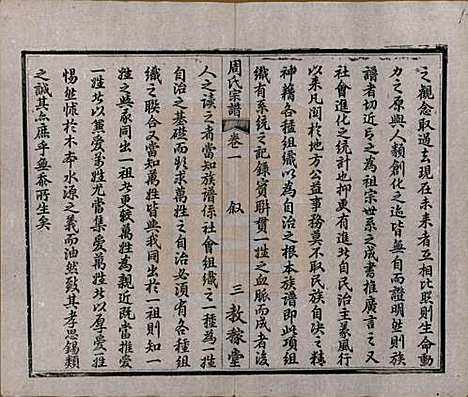 之觀念取過去現在未来者互相比照則生命動
力之原與人類創化之迹皆無自而證明然則族
譜者切近言之為祖宗世系之成書推廣言之又
社會進化之統計也抑更有進者自民治主義風行
以来凡関於地方公益事務莫不取民族自决之精
神藉各種組織以為自治之根本族譜即此項組
織有系统之記録實聯貫一姓之血脈而成者後
周氏宗譜 卷一 叙 三 教稼堂
人之讀之者當知族譜係社會組織之一種為一姓
自治之基礎而欲求萬姓之自治必須有各姓組
織之聯合又當知萬姓皆與我同出於一祖則知一
姓之與承同出一祖者更較萬姓為親近既當推愛
一姓者以兼愛萬姓尤當集愛萬姓者以厚愛一姓
惕然悚於木本水源之義而油然致其孝思錫類
之誠其亦庶乎無忝所生矣